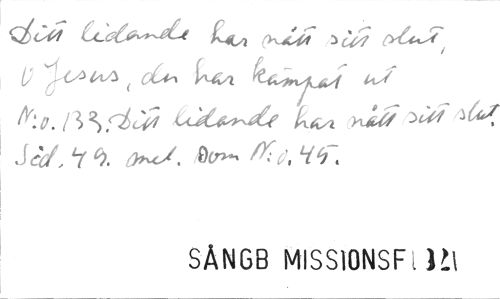 Ditt lidande har nått sitt slut,
O Jesus, du har kämpat ut
N:o. 133. Ditt lidande har nått sitt slut.
Sid. 49. mel. Som N:o. 45.
SÅNGB MISSIONSF